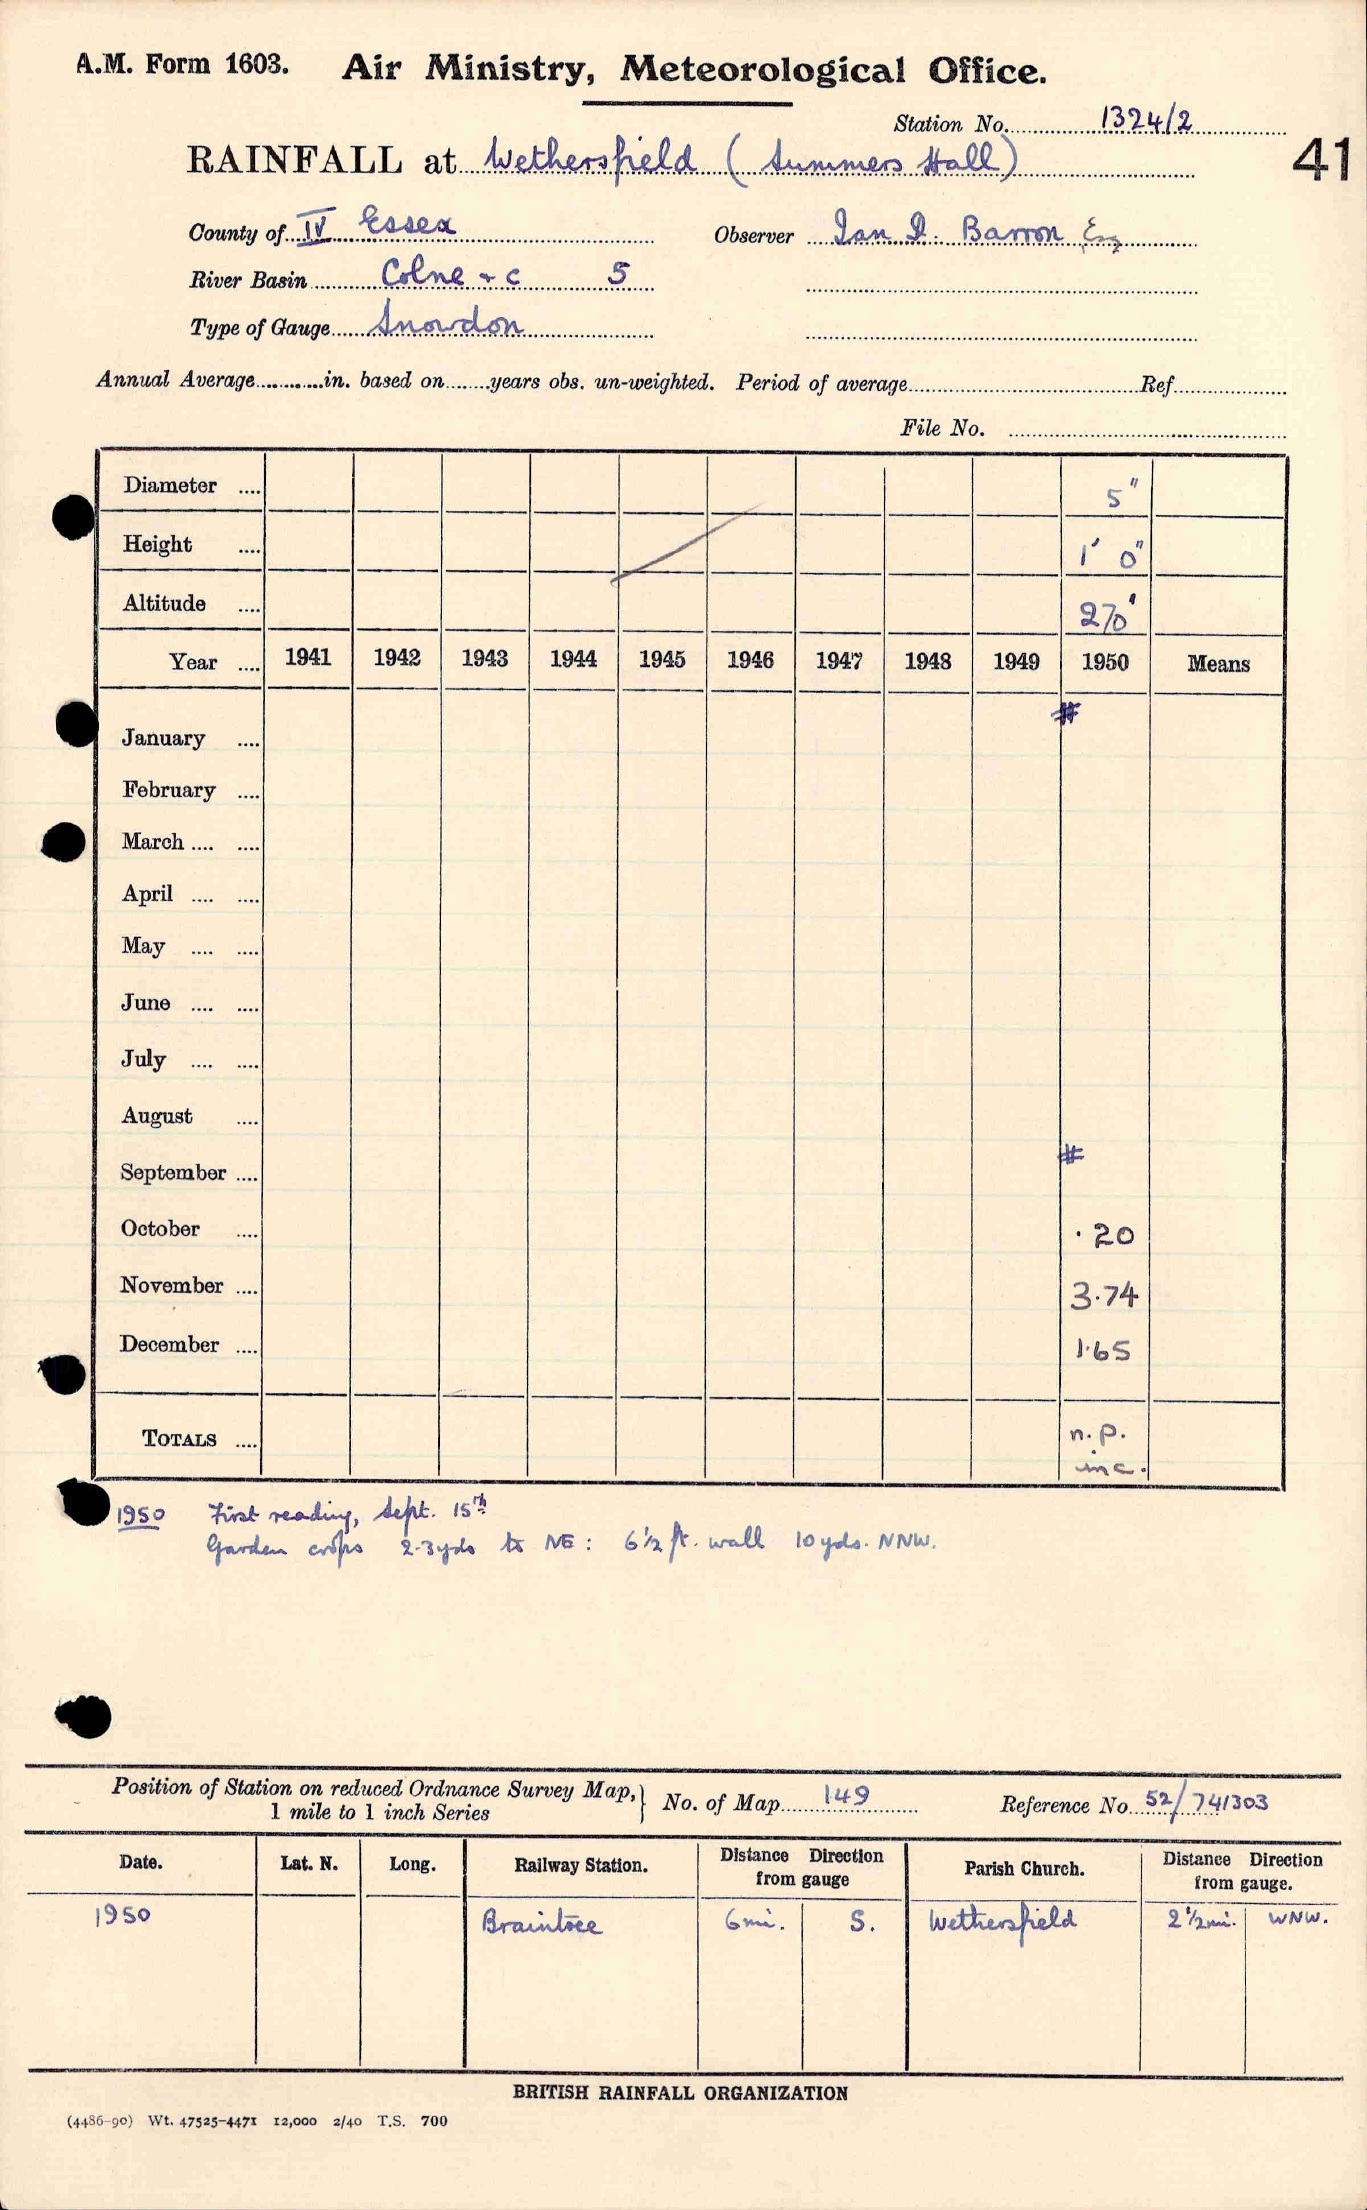 A.M. Form 1603. Air Ministry, Meteorological Office.
Station No. 1324/2
41
RAINFALL at Wethersfield (Summers Hall)
County of IV Essex Observer Ian D. Barron Esq
River Basin Colne + c 5
Type of Gauge Snowdon
Annual Average............in. based on........years obs. un-weighted. Period of average........................Ref................
File No. ................
Diameter .... 5"
Height .... 1' 0"
Altitude .... 270'
Year .... 1941 1942 1943 1944 1945 1946 1947 1948 1949 1950 Means
#
January ....
February ....
March .... ....
April .... ....
May .... ....
June .... ....
July .... ....
August ....
September .... #
October .... .20
November .... 3.74
December .... 1.65
TOTALS .... n.p.
inc.
1950 First reading, Sept. 15th
Garden crops 2-3yds to NE: 6½ ft. wall 10yds. NNW.
Position of Station on reduced Ordnance Survey Map,} No. of Map 149 Reference No. 52/741303
1 mile to 1 inch Series
Date. Lat. N. Long. Railway Station. Distance Direction from gauge Parish Church. Distance Direction from gauge.
1950 Braintree 6mi. S. Wethersfield 2½mi. WNW.
BRITISH RAINFALL ORGANIZATION
(4486-90) Wt. 47525-4471 12,000 2/40 T.S. 700